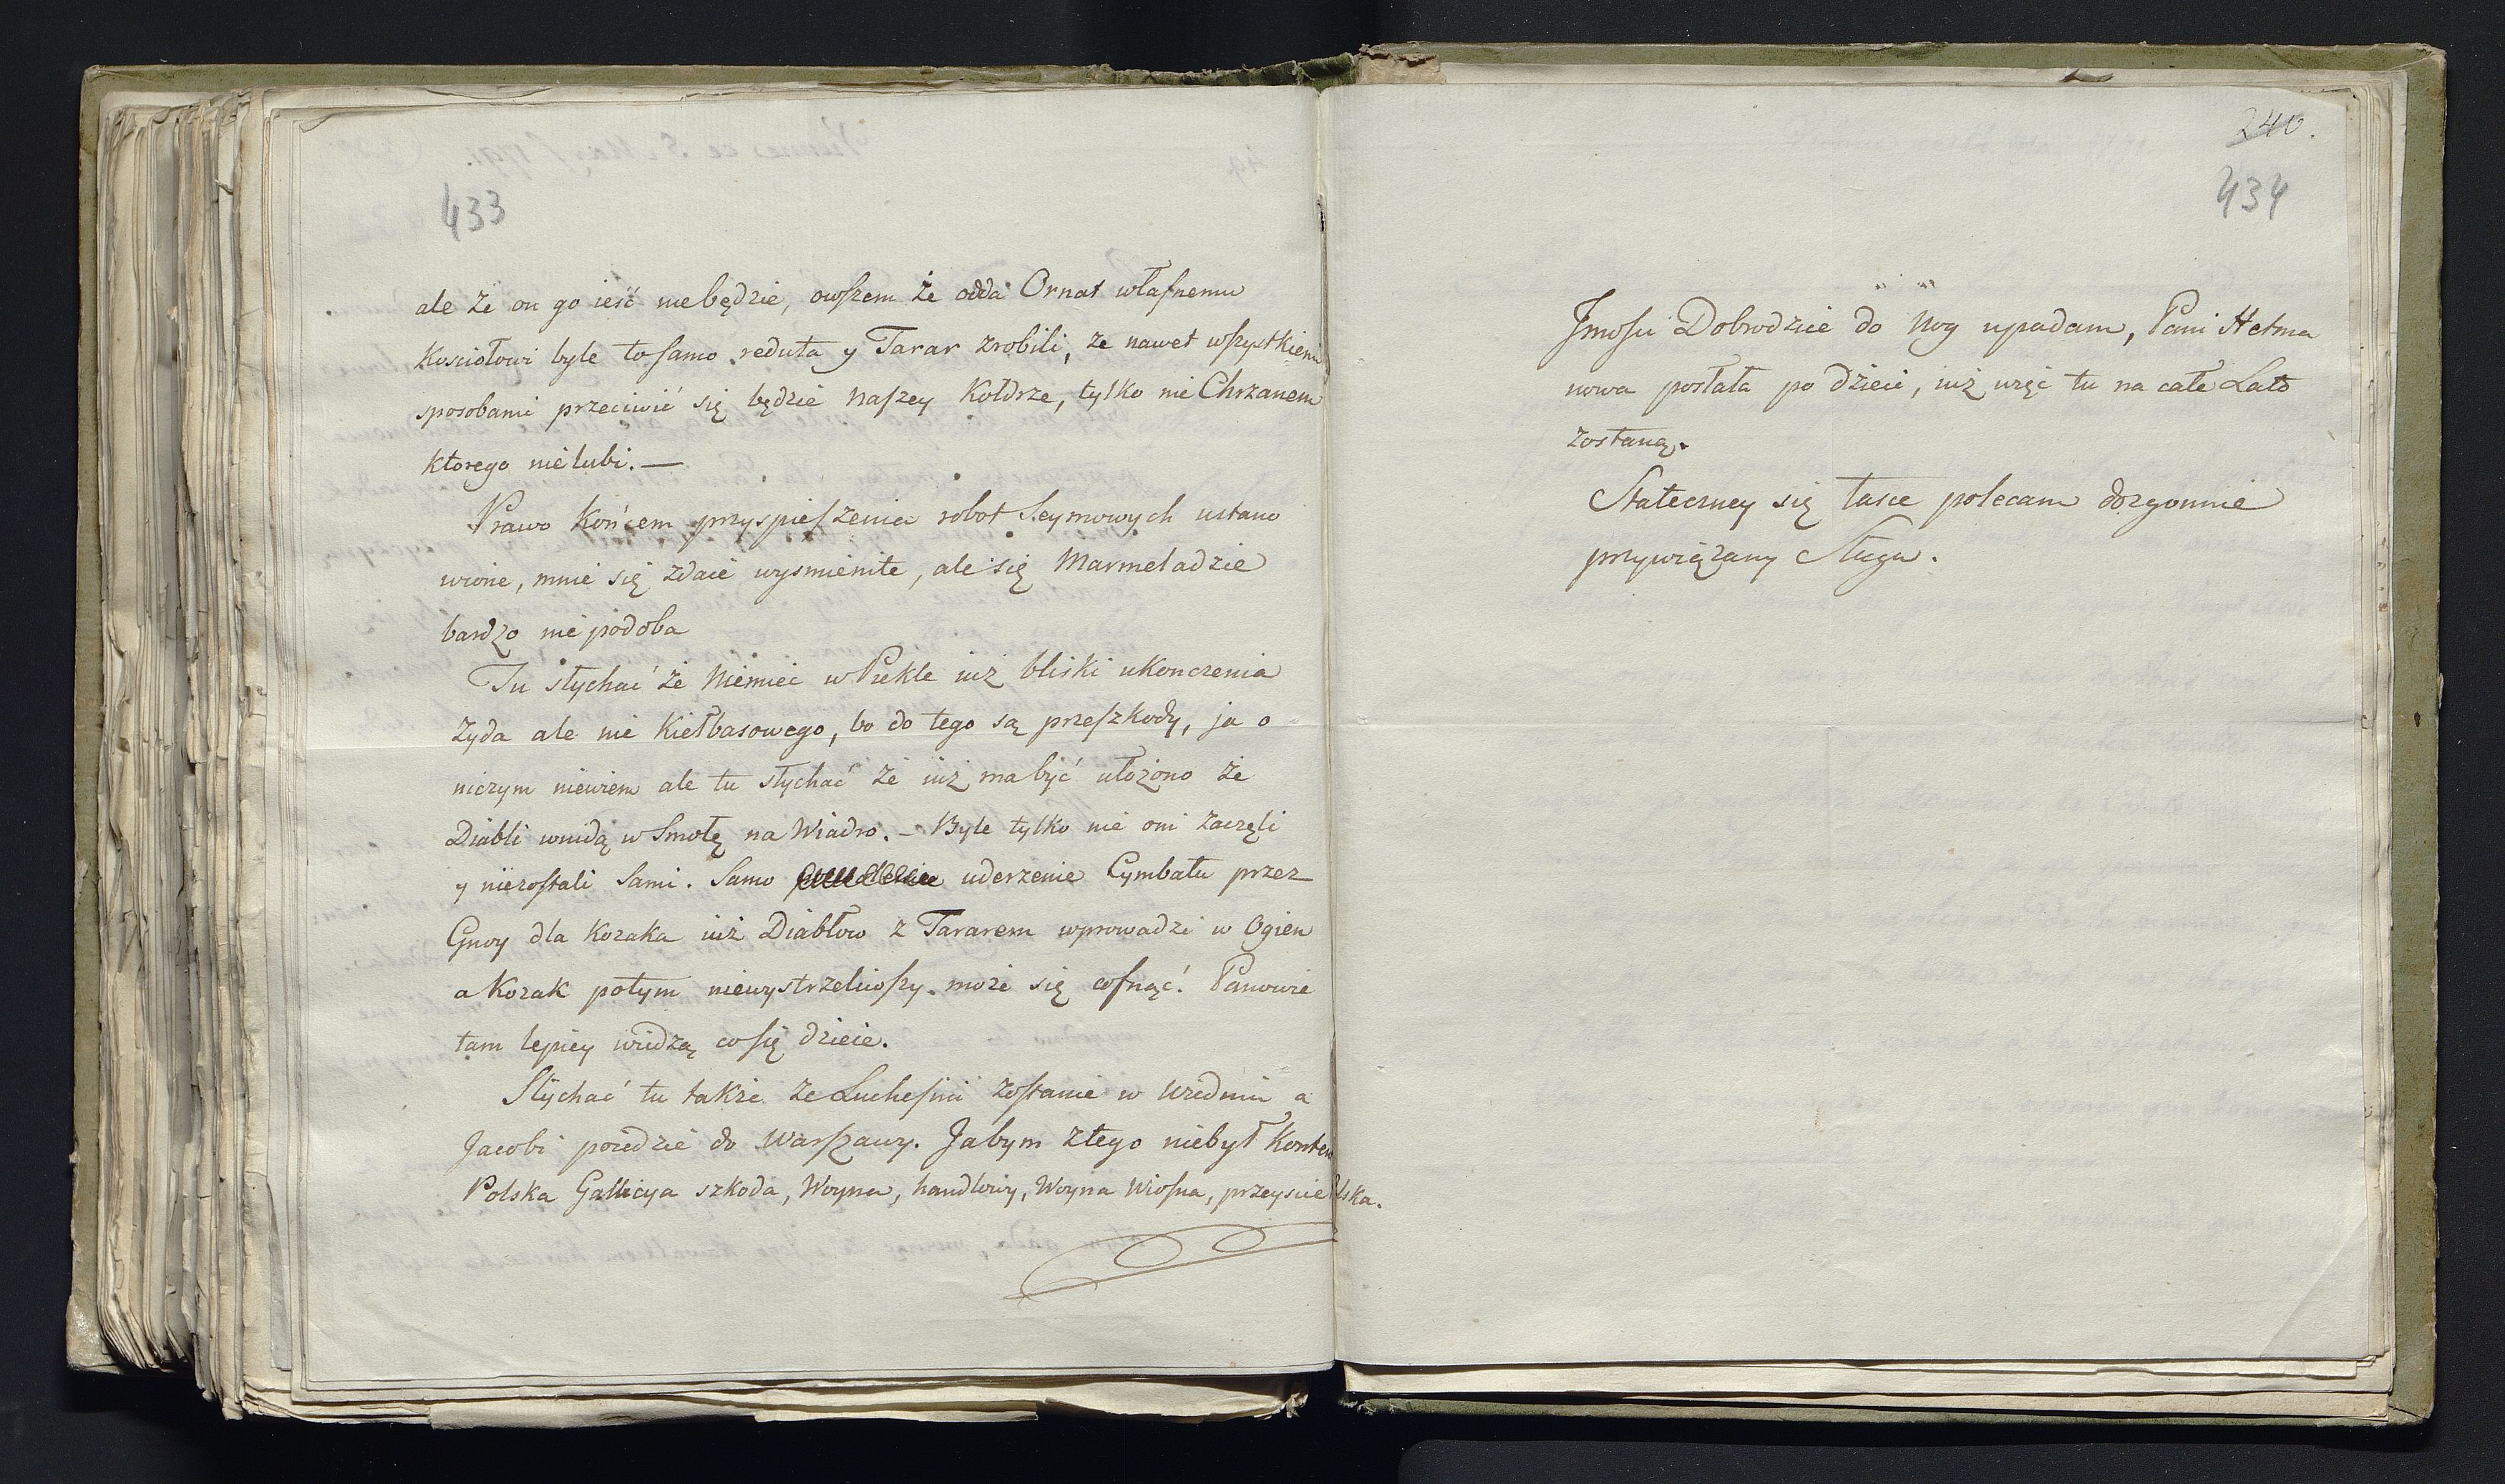 433
ale że on go ieść niebędzie, owszem że odda Ornat własnemu
Kosciołowi byle tosamo reduta y Tarar zrobili, że nawet wszystkiemi
sposobami przeciwić się będzie Naszey Kołdrze, tylko nie Chrzanem
ktorego nielubi. —
Prawo końcem przyspieszenia robot Seymowych ustano
wione, mnie się zdaie wysmienite, ale się Marmeladzie
bardzo nie podoba
Tu słychać że Niemiec w Piekle iuż bliski ukonczenia
Zyda ale nie Kiełbasowego, bo do tego są przeszkody, ja o
niczym niewiem ale tu słychać że iuż ma być ułożono że
Diabli wnidą w Smołę na Wiadro. – Byle tylko nie oni zaczęli
y niezostali sami. Samo uderzenie Cymbału przez
Gnoy dla Kozaka iuż Diabłow z Tararem wprowadzi w Ogien
a Kozak potym niewystrzeliwszy może się cofnąć! Panowie
tam lepiey widzą co się dzieie.
Słychać tu także że Luchesini zostanie w Wiedniu a
Jacobi poiedzie do Warszawy. Jabym z tego niebył Konten
Polska Gallicya szkoda, Woyna, handlowy, Woyna Wiosna, przeyscie Wiska.
240.
434
Jmosci Dobrodzice do Nog upadam, Pani Hetma
nowa posłała po dzieci, iuż więc tu na całe Lato
zostaną.
Stateczney się łasce polecam dozgonnie
przywiązany Sługa.